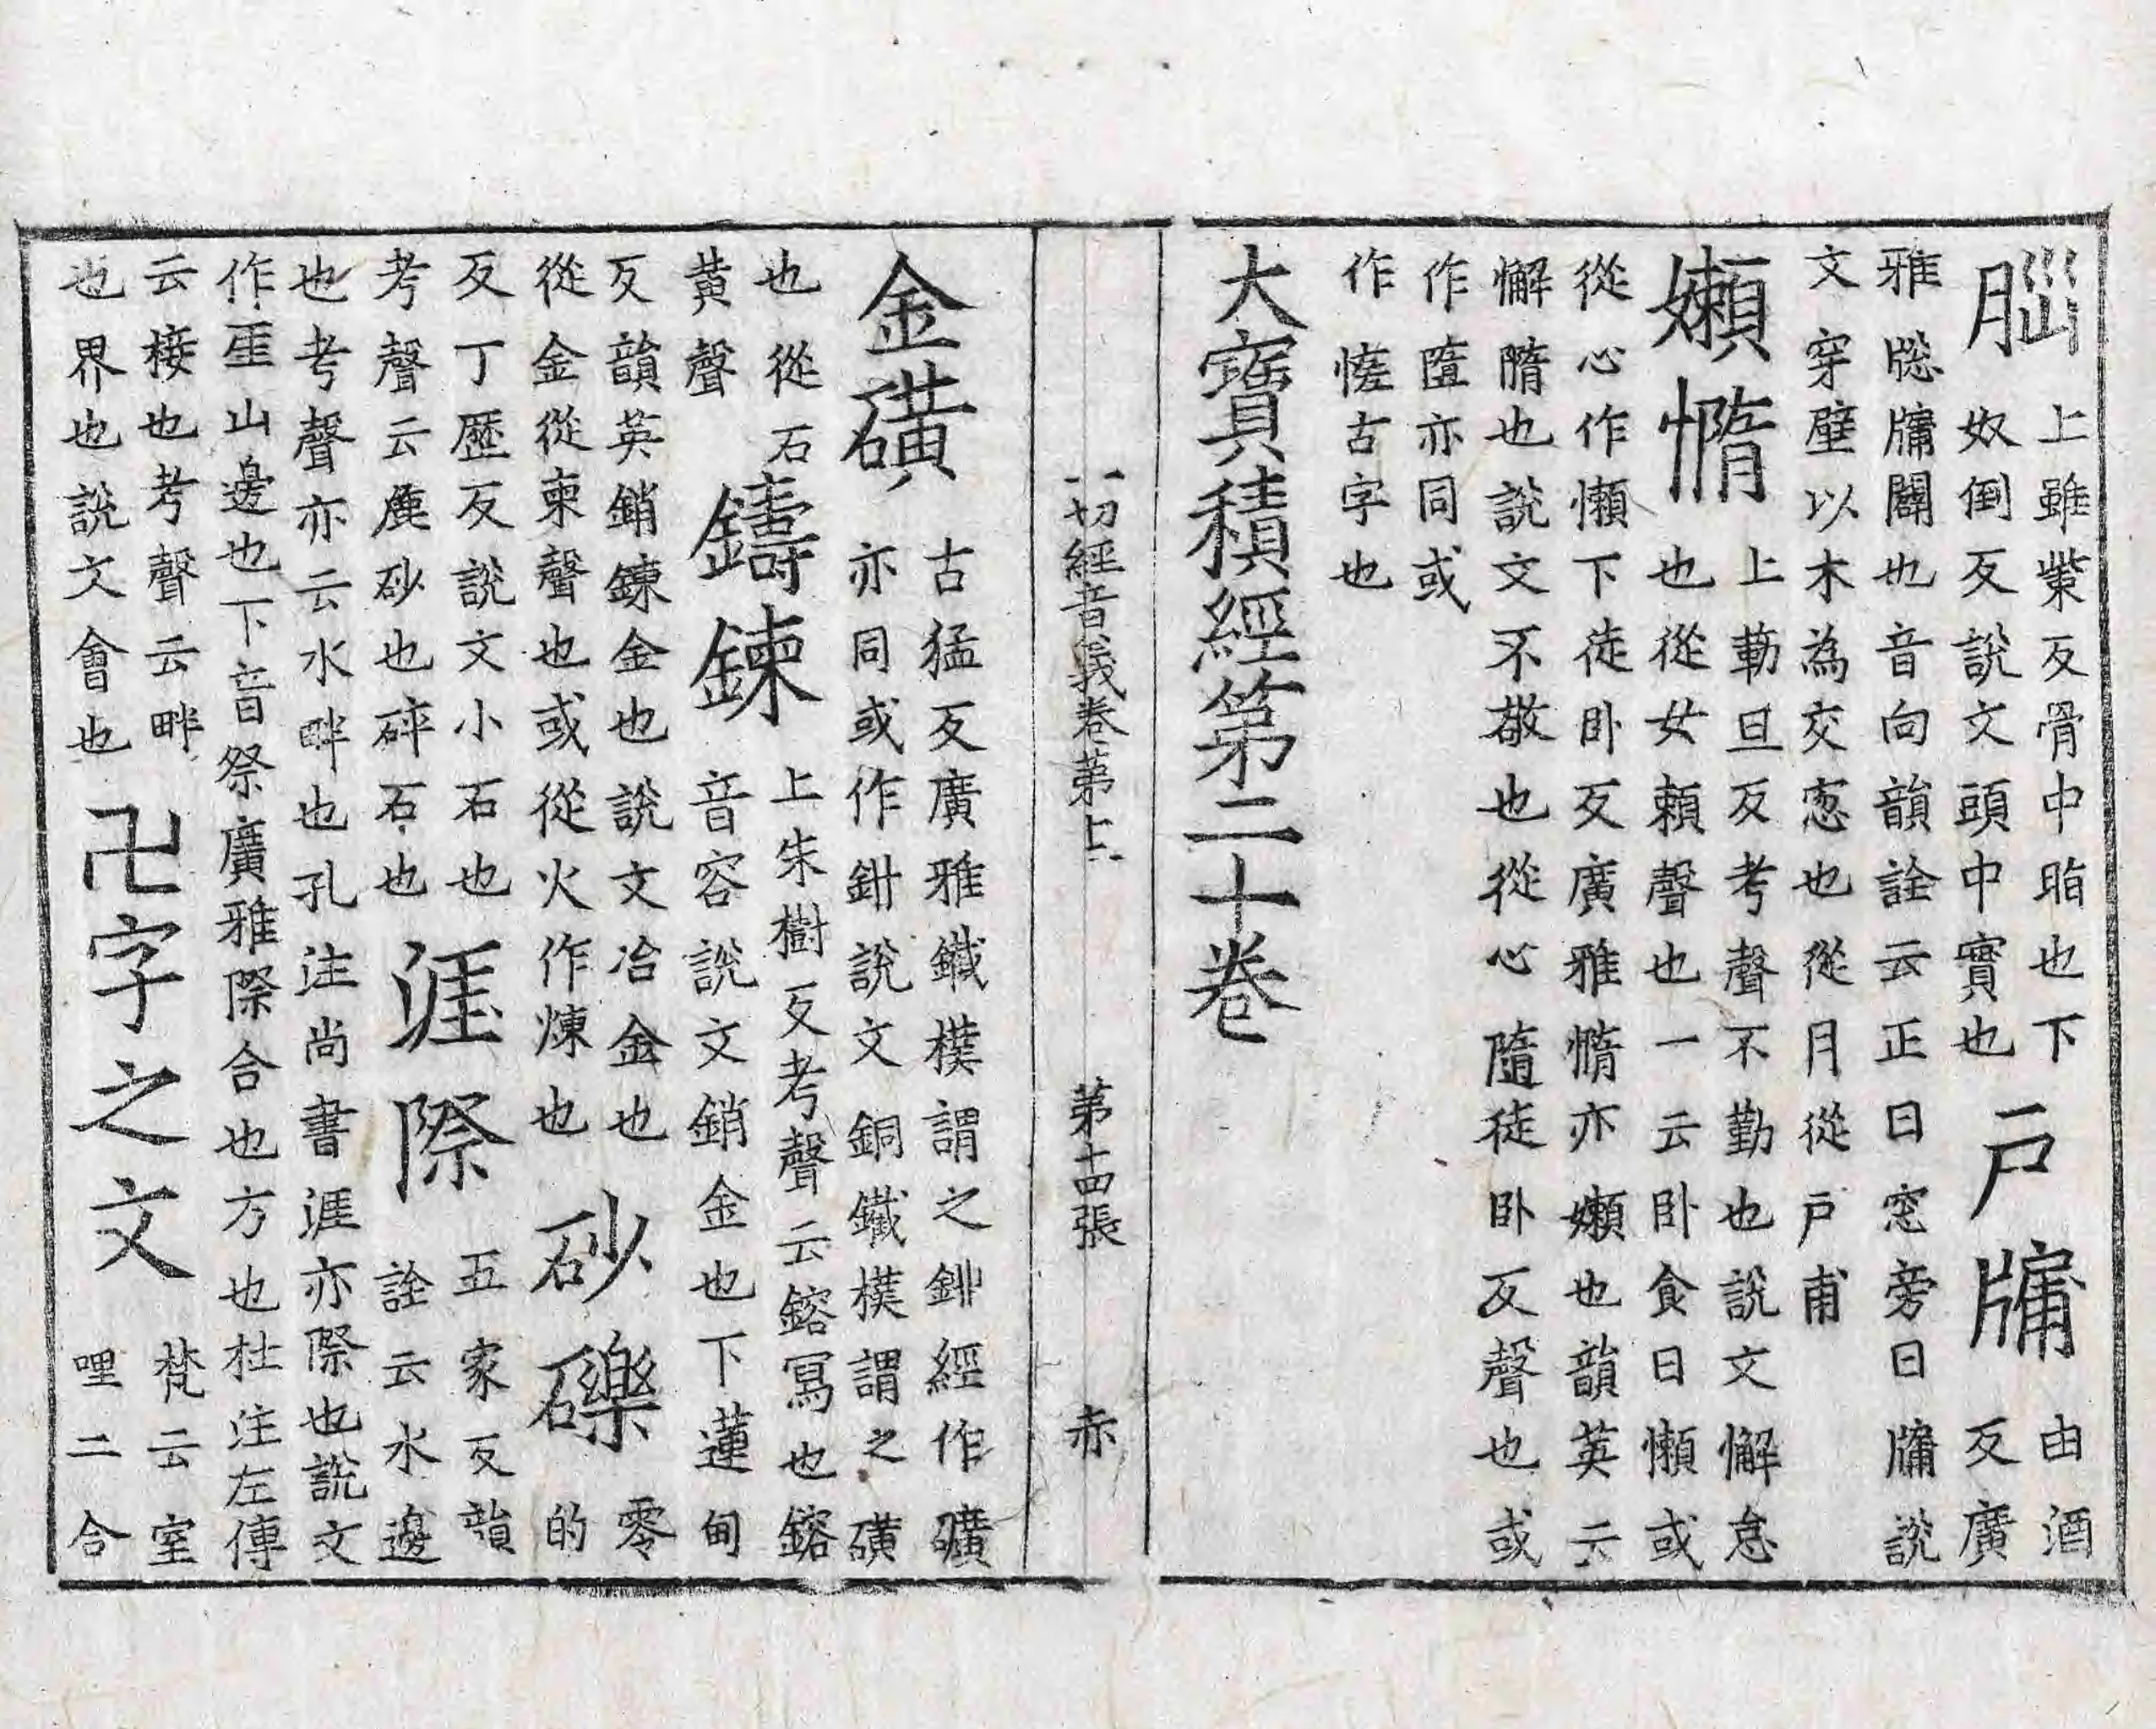 腦
上雖觜反骨中脂也下
奴倒反說文頭中實也
戶牖
由酒
反廣
雅牎牖闢也音向韻詮云正曰窓旁曰牖說
文穿壁以木為交窓也從月從戶甫
嬾惰
上勒旦反考聲不勤也說文懈怠
也從女頼聲也一云卧食曰懶或
從心作懶下徒卧反廣雅惰亦嬾也韻英云
懈惰也說文不敬也從心隨徒卧反聲也或
作㒩亦同或
作古字也
大寶積經第二十卷
一切經音義卷第十一 第十四張 赤
金礦
古猛反廣雅鐵樸謂之經作礦
亦同或作鉗說文銅鐵樸謂之磺
也從石
黃聲
鑄鍊
上朱樹反考聲云鎔寫也鎔
音容說文銷金也下蓮甸
反韻英銷鍊金也說文冶金也
從金從柬聲也或從火作煉也
砂礫
零
的
反丁歷反說文小石也
考聲云麁砂也碎石也
涯際
五家反韻
詮云水邊
也考聲亦云水畔也孔注尚書涯亦際也說文
作厓山邊也下音祭廣雅際合也方也杜注左傳
云接也考聲云畔
也界也說文會也
卍字之文
梵云室
哩二合